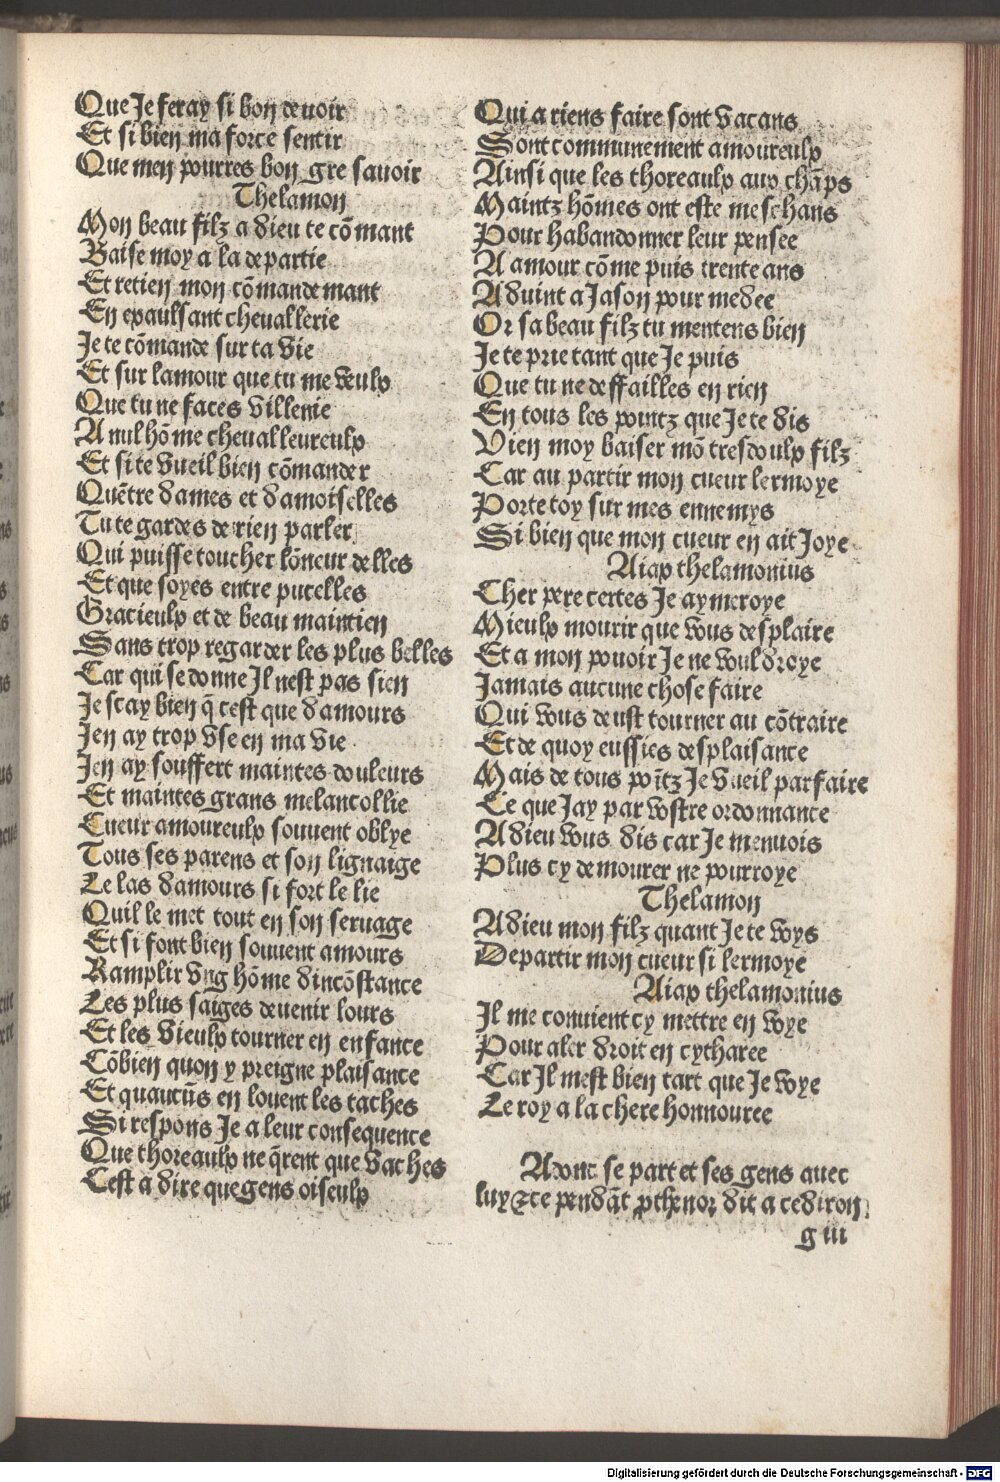 Que Je feray si bon deuoir
Et si bien ma force sentir
Que men pourres bon gre sauoir
Thelamon
Mon beau filz a dieu te cõmant
Baise moy a la departie
Et retien mon cõmandemant
En epaulsant cheuallerie
Je te cõmande sur ta vie
Et sur lamour que tu me veulx
Que tu ne faces villenie
A nul hõme cheualleureulx
Et si te vueil bien cõmander
Quẽtre dames et damoiselles
Tu te gardes de rien parler
Qui puisse toucher lõneur delles
Et que soyes entre pucelles
Gracieulx et de beau maintien
Sans trop regarder les plus belles
Car qui se donne Jl nest pas sien
Je scay bien q̃ cest que damours
Jen ay trop vse en ma vie
Jen ay souffert maintes douleurs
Et maintes grans melancollie
Cueur amoureulx souuent oblye
Tous ses parens et son lignaige
Le las damours si fort le lie
Quil le met tout en son seruage
Et si font bien souuent amours
Ramplir vng hõme dincõstance
Les plus saiges deuenir lours
Et les vieulx tourner en enfance
Cõbien quon y preigne plaisance
Et quaucũs en louent les taches
Si respons Je a leur consequence
Que thoreaulx ne q̃rent que vaches
Cest a dire que gens oiseulx
Qui a riens faire sont vacans
Sont communement amoureulx
Ainsi que les thoreaulx aux chãps
Maintz hõmes ont este meschans
Pour habandonner leur pensee
A amour cõme puis trente ans
Aduint a Jason pour medee
Or sa beau filz tu mentens bien
Je te prie tant que Je puis
Que tu ne deffailles en rien
En tous les pointz que Je te dis
Vien moy baiser mõ tresdoulx filz
Car au partir mon cueur lermoye
Porte toy sur mes ennemys
Si bien que mon cueur en ait Joye
Aiax thelamonius
Cher pere certes Je aymeroye
Mieulx mourir que vous desplaire
Et a mon pouoir Je ne vouldroye
Jamais aucune chose faire
Qui vous deust tourner au cõtraire
Et de quoy eussies desplaisance
Mais de tous poĩtz Je vueil parfaire
Ce que Jay par vostre ordonnance
Adieu vous dis car Je menuois
Plus cy demourer ne pourroye
Thelamon
Adieu mon filz quant Je te voys
Departir mon cueur si lermoye
Aiax thelamonius
Jl me conuient cy mettre en voye
Pour aler droit en cytharee
Car Jl mest bien tart que Je voye
Le roy a la chere honnouree
Adonc se part et ses gens auec
luy &ce pendãt ꝓthenoꝛ dit a cediron
g iii
Digitalisierung gefördert durch die Deutsche Forschungsgemeinschaft - DFG